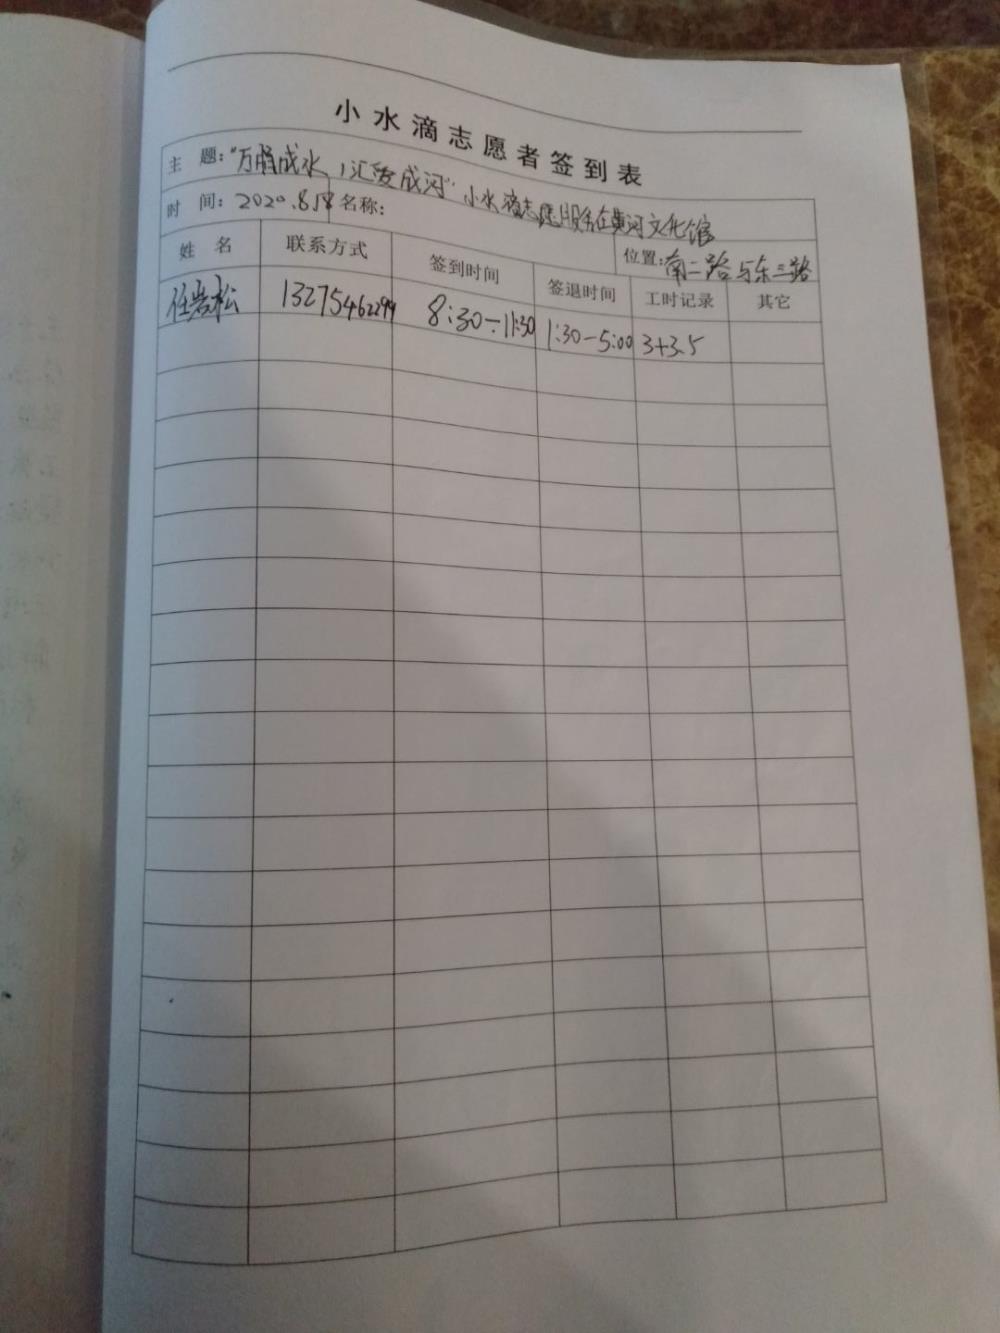 小水滴志愿者签到表
主 题:"万涓成水,汇爱成河"小水滴志愿服务在黄河文化馆
时 间:2020.8.18 名称:
位置:南二路与东三路
姓 名 联系方式 签到时间 签退时间 工时记录 其它
任岩松 13275462299 8:30-11:30 1:30-5:00 3+3.5